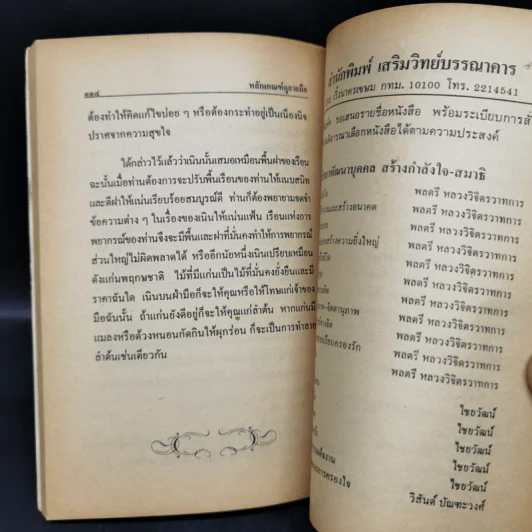 ๑๑๔
หลักเกณฑ์ดูลายมือ
ต้องทำให้คิดแก้ไขบ่อย ๆ หรือต้องกระทำอยู่เป็นเนืองนิจ
ปราศจากความสุขใจ
ได้กล่าวไว้แล้วว่าเนินนั้นเสมอเหมือนพื้นฝาของเรือน
ฉะนั้นเมื่อท่านต้องการจะปรับพื้นเรือนของท่านให้แนบสนิท
และตีฝาให้แน่นเรียบร้อยสมบูรณ์ดี ท่านก็ต้องพยายามจดจำ
ข้อความต่าง ๆ ในเรื่องของเนินให้แน่นแฟ้น เรือนแห่งการ
พยากรณ์ของท่านจึงจะมีพื้นและฝาที่มั่นคงทำให้การพยากรณ์
ส่วนใหญ่ไม่ผิดพลาดได้ หรืออีกนัยหนึ่งเนินเปรียบเหมือน
ดังแก่นพฤกษชาติ ไม้ที่มีแก่นเป็นไม้ที่มั่นคงยั่งยืนและมี
ราคาฉันใด เนินบนฝ่ามือก็จะให้คุณหรือให้โทษแก่เจ้าของ
มือฉันนั้น ถ้าแก่นยังดีอยู่ก็จะให้คุณแก่ลำต้น หากแก่นมี
แมลงหรือด้วงหนอนกัดกินให้ผุกร่อน ก็จะเป็นการทำลาย
ลำต้นเช่นเดียวกัน
สำนักพิมพ์ เสริมวิทย์บรรณาคาร
เวิ้งนาครเขษม กทม. 10100 โทร. 2214541
ขอเสนอรายชื่อหนังสือ พร้อมระเบียบการสั่
เลือกหนังสือได้ตามความประสงค์
พัฒนาบุคคล สร้างกำลังใจ-สมาธิ
พลตรี หลวงวิจิตรวาทการ
และสร้างอนาคต พลตรี หลวงวิจิตรวาทการ
พลตรี หลวงวิจิตรวาทการ
สร้างความยิ่งใหญ่ พลตรี หลวงวิจิตรวาทการ
พลตรี หลวงวิจิตรวาทการ
พลตรี หลวงวิจิตรวาทการ
พลตรี หลวงวิจิตรวาทการ
พลตรี หลวงวิจิตรวาทการ
พลตรี หลวงวิจิตรวาทการ
พลตรี หลวงวิจิตรวาทการ
ครองรัก พลตรี หลวงวิจิตรวาทการ
ไชยวัฒน์
ไชยวัฒน์
ไชยวัฒน์
ไชยวัฒน์
ไชยวัฒน์
การครองใจ วิสันต์ บัณฑะวงศ์